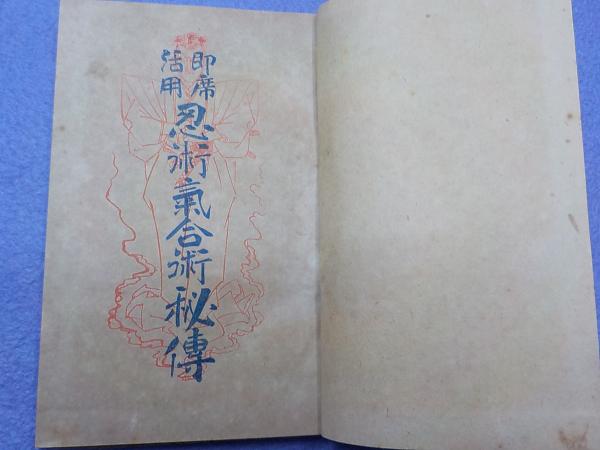 即席
活用
忍術氣合術秘傳